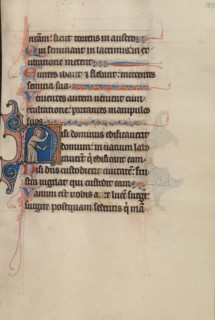 nostram: sicut torrens in austro.
Qui seminant in lacrimis: in ex
ultatione metent.
Euntes ibant et flebant: mittentes
semina sua.
Venientes autem venient cum
exultatione: portantes manipulos
suos.
Nisi dominus edificaverit
domum: in vanum labo
raverunt qui edificant eam.
Nisi dominus custodierit civitatem: fru
stra vigilat qui custodit eam.
Vanum est vobis ante lucem surgere:
surgite postquam sederitis qui man